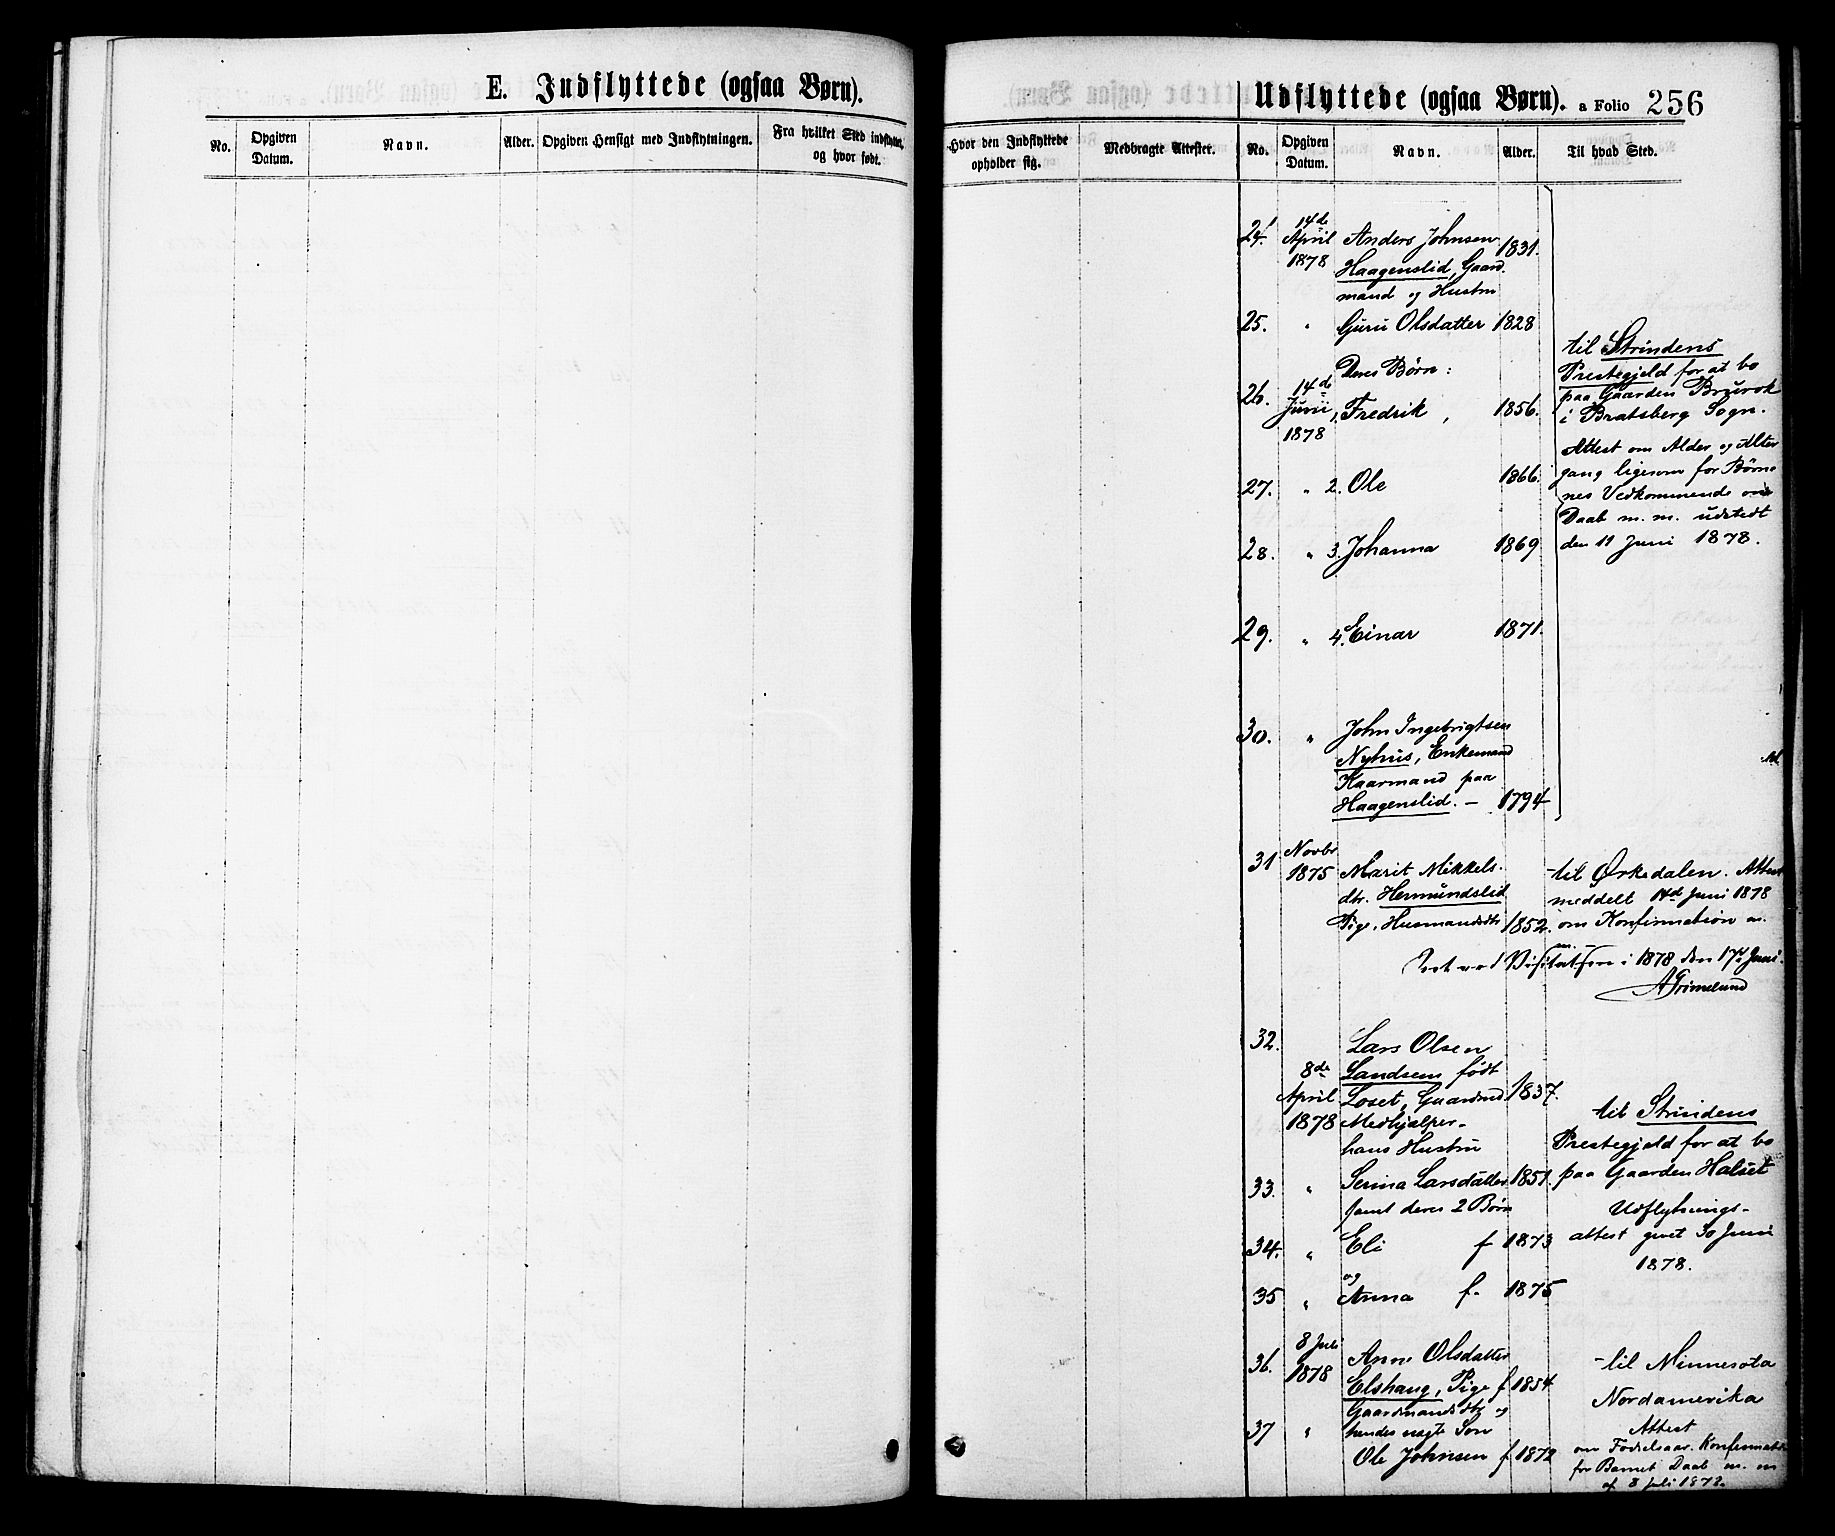 E. Indflyttede (ogsaa Børn).
No.
Opgiven Datum.
Navn.
Alder.
Opgiven Hensigt med Indflytningen.
Fra hvilket Sted indflyttet, og hvor født.
Udflyttede (ogsaa Børn). a Folio 256
Hvor den Indflyttede opholder sig.
Medbragte Attester.
No.
Opgiven Datum.
Navn.
Alder.
Til hvad Sted.
24. 14de April 1878 Anders Johnsen 1831.
Haagenslid, Gaard-
mand og Hustru
25. " Guru Olsdatter 1828
Deres Børn:
26. 14de Juni 1878 1, Fredrik, 1856.
27. " 2. Ole 1866.
28. " 3. Johanna 1869
29. " 4. Einar 1871.
til Strindens
Prestegjeld for at bo
paa Gaarden Brurok
i Bratsberg Sogn.
Attest om Alder og Alter
gang ligesom for Børne
nes Vedkommende om
Daab m. m. udstedt
den 11 Juni 1878.
30. " John Ingebrigtsen
Nyhus, Enkemand
Kaarmand paa
Haagenslid. – 1794
31 Novbr 1875 Marit Mikkels-
dtr. Hermundslid
Pige, Husmandsdtr 1852.
til Ørkedalen. Attest
meddelt 14de Juni 1878
om Konfirmation m.
m. –
ved Visitatsen i 1878 den 17de Juni.
AGrimelund
32. 8de April 1878 Lars Olsen
Landsem født
Loset, Gaardmd 1837.
Medhjælper –
hans Hustru
33. " Serina Larsdatter 1851.
samt deres 2 Børn
34. " Eli f 1873
og
35 " Anna f. 1875
til Strindens
Prestegjeld for at bo
paa Gaarden Halset
Udflytnings-
attest givet 30 Juni
1878.
36. 8 Juli 1878 Anne Olsdatter
Elshaug, Pige f 1854
Gaardmandsdtr og
37 " hendes uegte Søn
Ole Johnsen f 1872
til Minnesota
Nordamerika
Attest
om Fødselsaar, Konfirmation
for Barnet Daab m. m
af 8 Juli 1878.